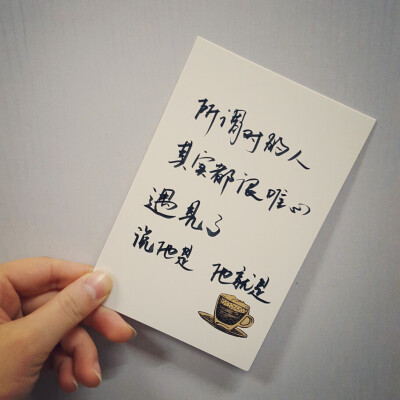 所谓对的人
其实都很唯心
遇见了
说他是 他就是